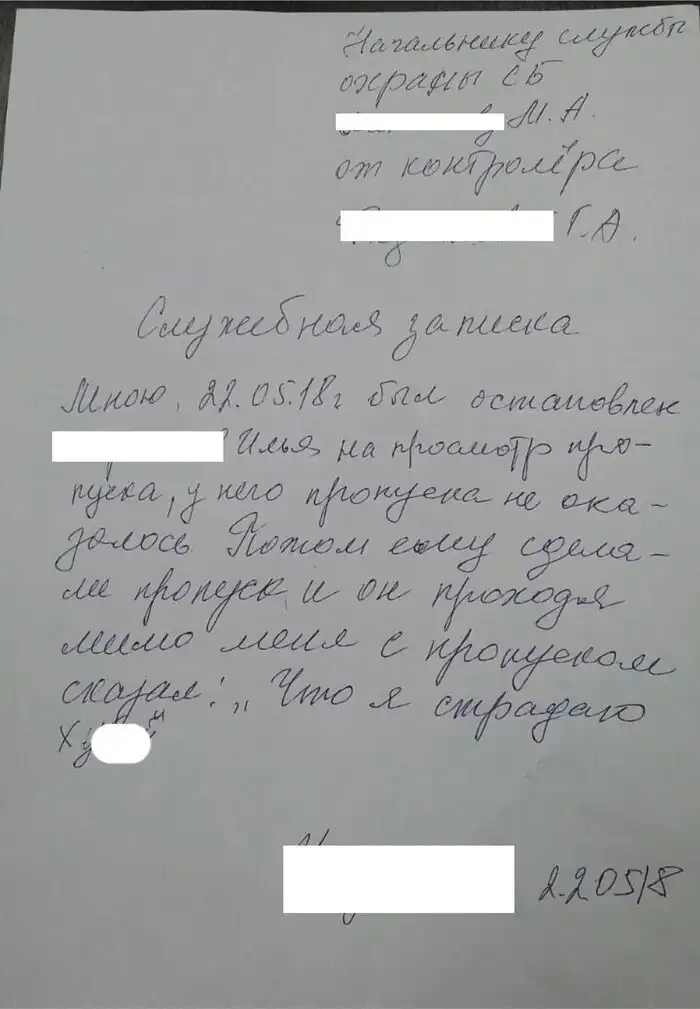 Начальнику службы
охраны СБ
М.А.
от контролёра
Г.А.
Служебная записка
Мною, 22.05.18г был остановлен
Илья на просмотр про-
пуска, у него пропуска не ока-
залось. Потом ему сдела-
ли пропуск, и он проходя
мимо меня с пропуском
сказал: „Что я страдаю
ху
22.05.18